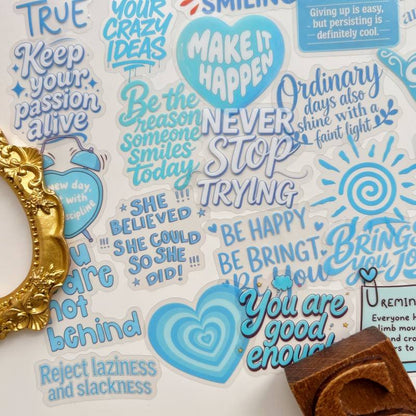 TRUE
YOUR
CRAZY
IDEAS
SMILING
Giving up is easy,
but persisting is
definitely cool.
Keep
your
passion
alive
MAKE IT
HAPPEN
Be the
reason
someone
smiles
today
Ordinary
days also
shine with a
faint light
NEVER
STOP
TRYING
new day,
with
discipline
SHE
BELIEVED
SHE COULD
SO SHE
DID!
BE HAPPY
BE BRINGT
BE YOU
BRING
YOU JO
You
are
not
behind
You are
good
enough
REMIN
Everyone h
climb mou
and cro
Reject laziness
and slackness